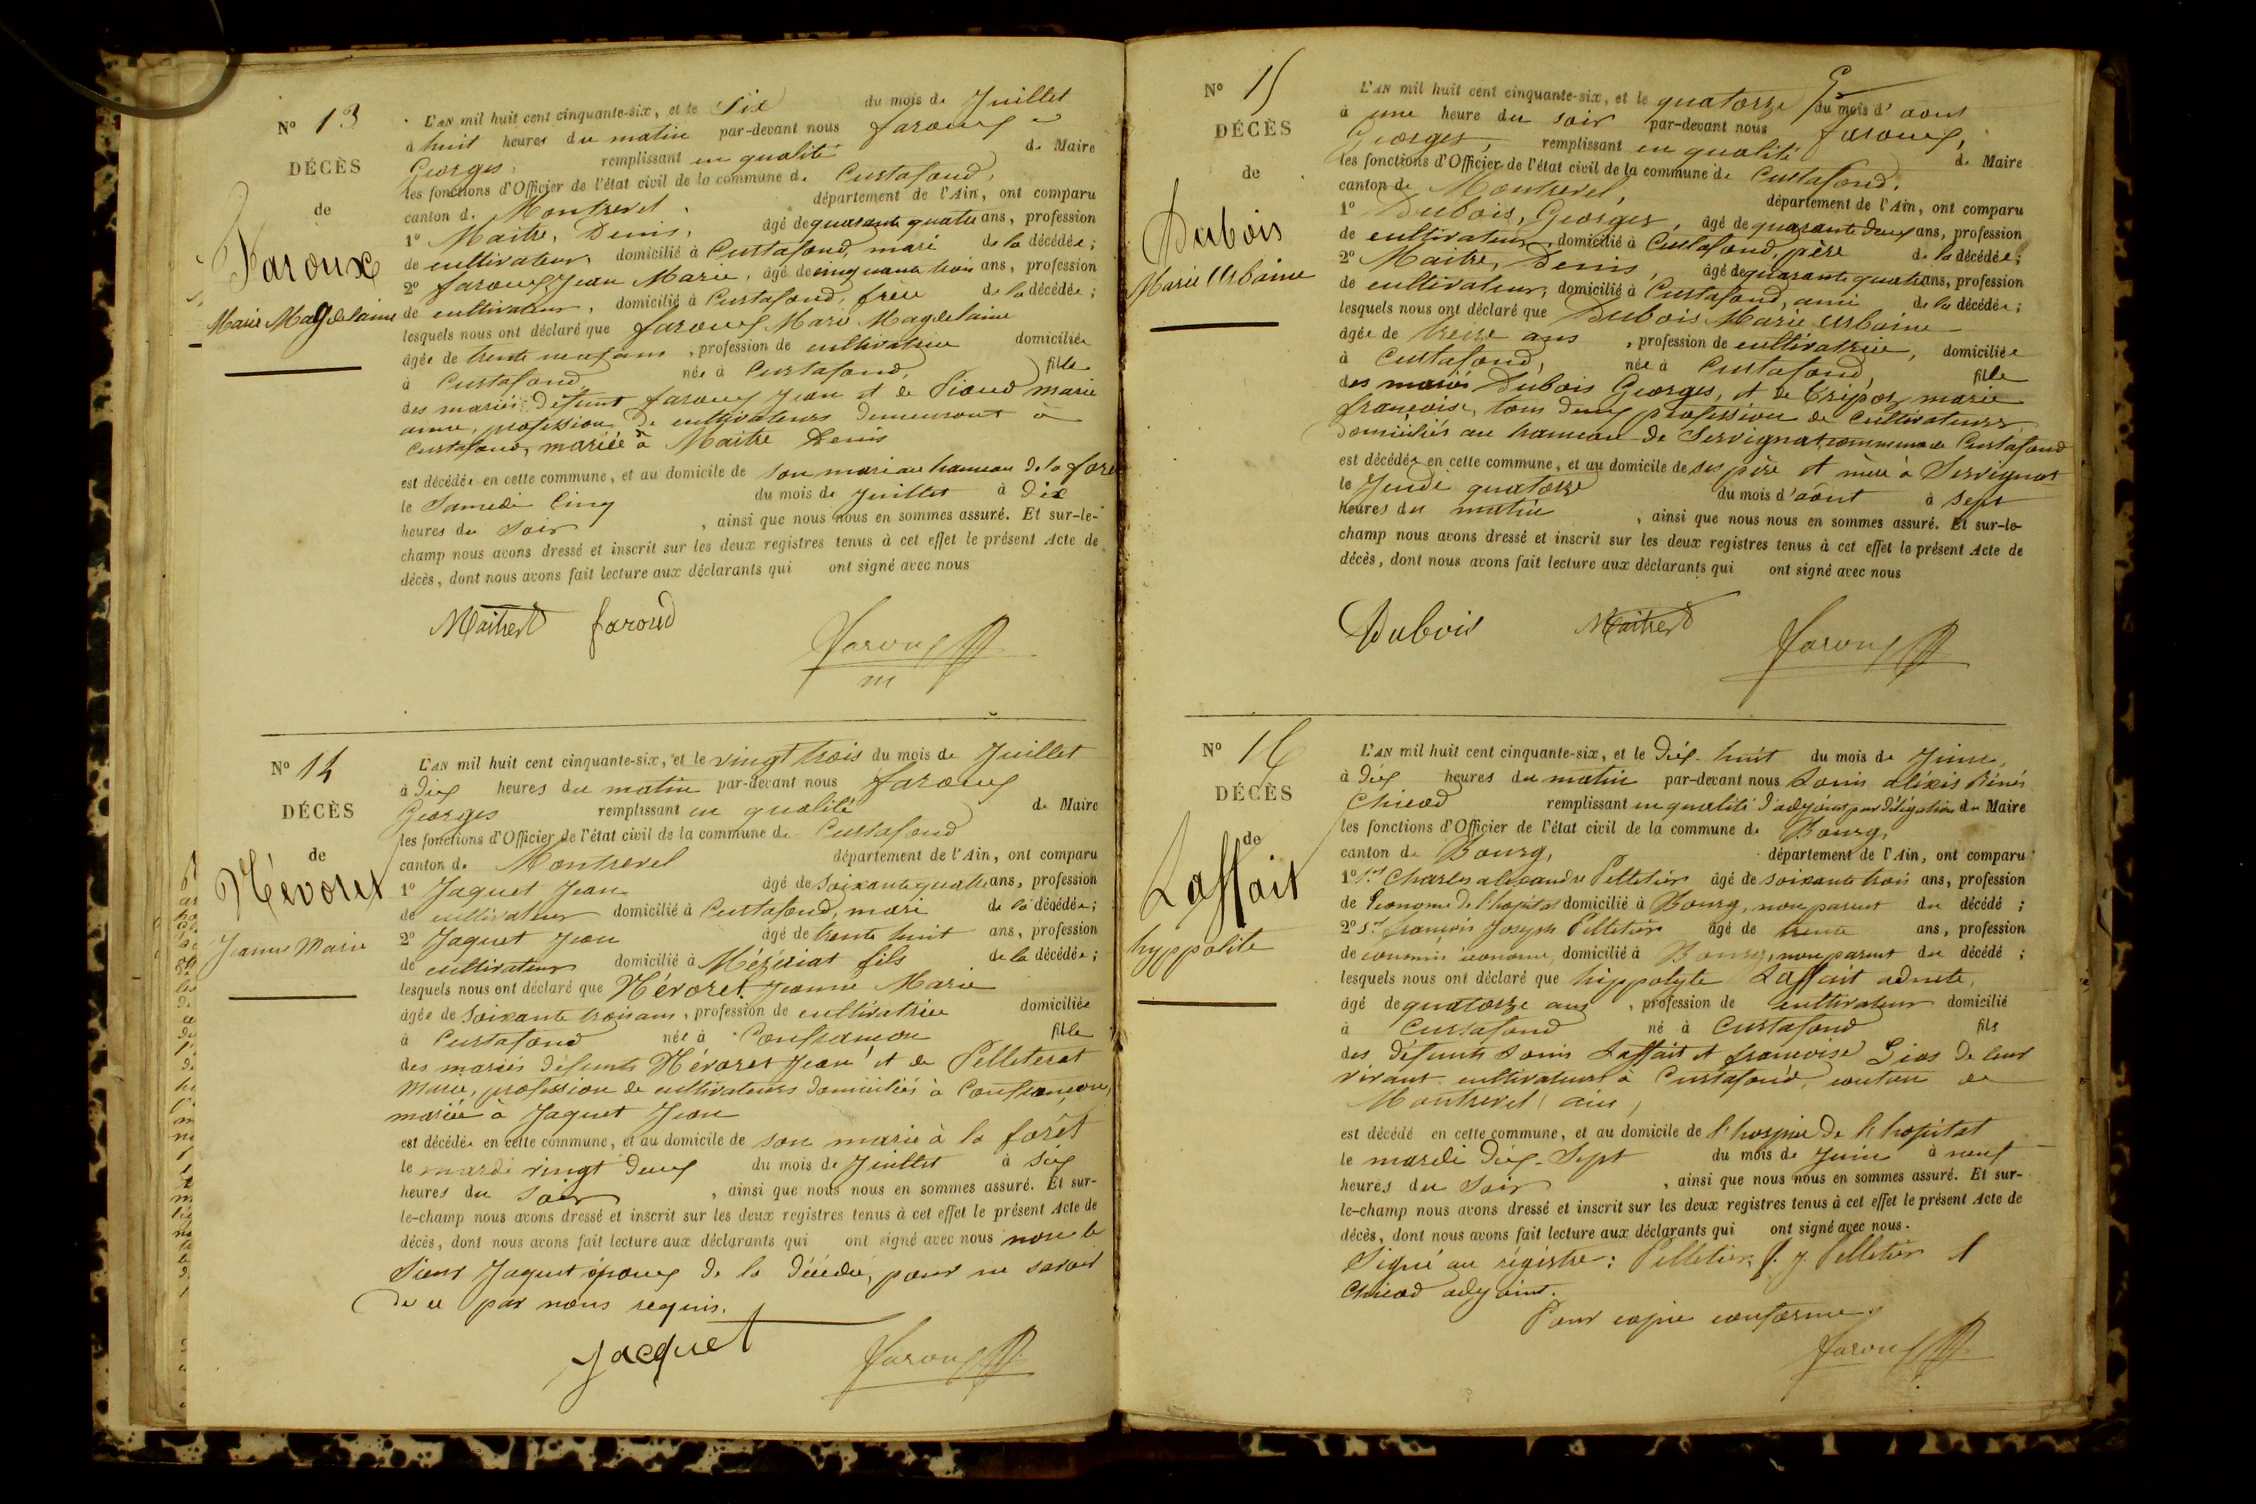 N° 13
DÉCÈS
de
Faroux
Marie Magdelaine
L'AN mil huit cent cinquante-six, et le Six du mois de Juillet
à huit heures du matin par-devant nous faroux
Georges, remplissant en qualité de Maire
les fonctions d'Officier de l'état civil de la commune de Curtafond,
canton de Montrevel, département de l'Ain, ont comparu
1° Maitre, Denis, âgé de quarante quatre ans, profession
de cultivateur, domicilié à Curtafond, mari de la décédée;
2° faroux Jean Marie, âgé de cinquante trois ans, profession
de cultivateur, domicilié à Curtafond, frère de la décédée;
lesquels nous ont déclaré que faroux Marie Magdelaine
âgée de trente neuf ans, profession de cultivatrice domiciliée
à Curtafond, née à Curtafond, fille
des mariés défunt faroux Jean et de Pioud marie
anne, profession de cultivateurs demeurant à
Curtafond, mariée à Maitre Denis
est décédée en cette commune, et au domicile de son mari au hameau de la forêt
le Samedi Cinq du mois de Juillet à dix
heures du Soir, ainsi que nous nous en sommes assuré. Et sur-le-
champ nous avons dressé et inscrit sur les deux registres tenus à cet effet le présent Acte de
décès, dont nous avons fait lecture aux déclarants qui ont signé avec nous
Maitre D faroud
faroux
m
N° 14
DÉCÈS
de
Névoret
Jeanne Marie
L'AN mil huit cent cinquante-six, et le vingt trois du mois de Juillet
à dix heures du matin par-devant nous faroux
Georges remplissant en qualité de Maire
les fonctions d'Officier de l'état civil de la commune de Curtafond
canton de Montrevel département de l'Ain, ont comparu
1° Jaquet Jean âgé de soixante quatre ans, profession
de cultivateur domicilié à Curtafond, mari de la décédée;
2° Jaquet Jean âgé de trente huit ans, profession
de cultivateur domicilié à Mézériat fils de la décédée;
lesquels nous ont déclaré que Névoret Jeanne Marie
âgée de soixante trois ans, profession de cultivatrice domiciliée
à Curtafond née à Confrançon fille
des mariés défunts Névoret Jean et de Pelleterat
Marie, profession de cultivateurs domiciliés à Confrançon,
mariée à Jaquet Jean
est décédée en cette commune, et au domicile de son marie à la forêt
le mardi vingt deux du mois de Juillet à six
heures du Soir, ainsi que nous nous en sommes assuré. Et sur-
le-champ nous avons dressé et inscrit sur les deux registres tenus à cet effet le présent Acte de
décès, dont nous avons fait lecture aux déclarants qui ont signé avec nous non le
Sieur Jaquet époux de la décédée, pour ne savoir
de ce par nous requis.
Jacquet
faroux
N° 15
DÉCÈS
de
Dubois
Marie Urbaine
L'AN mil huit cent cinquante-six, et le quatorze du mois d'aout
à une heure du soir par-devant nous faroux,
Georges, remplissant en qualité de Maire
les fonctions d'Officier de l'état civil de la commune de Curtafond,
canton de Montrevel, département de l'Ain, ont comparu
1° Dubois, Georges, âgé de quarante deux ans, profession
de cultivateur, domicilié à Curtafond, père de la décédée;
2° Maitre, Denis, âgé de quarante quatre ans, profession
de cultivateur, domicilié à Curtafond, ami de la décédée;
lesquels nous ont déclaré que Dubois Marie Urbaine
âgée de treize ans, profession de cultivatrice, domiciliée
à Curtafond, née à Curtafond, fille
des mariés Dubois Georges, et de Tripoz marie
françoise, tous deux profession de cultivateurs
domiciliés au hameau de Servignat commune de Curtafond
est décédée en cette commune, et au domicile de ses père et mère à Servignat
le Jeudi quatorze du mois d'août à sept
heures du matin, ainsi que nous nous en sommes assuré. Et sur-le-
champ nous avons dressé et inscrit sur les deux registres tenus à cet effet le présent Acte de
décès, dont nous avons fait lecture aux déclarants qui ont signé avec nous
Dubois Maitre D
faroux
N° 16
DÉCÈS
de
Laffait
hyppolite
L'AN mil huit cent cinquante-six, et le dix-huit du mois de Juin,
à dix heures du matin par-devant nous Louis aléxis Réné
Chicod remplissant en qualité d'adjoint par délégation du Maire
les fonctions d'Officier de l'état civil de la commune de Bourg,
canton de Bourg, département de l'Ain, ont comparu
1° Sr Charles alexandre Pelletier âgé de soixante trois ans, profession
de Econome de l'hopital domicilié à Bourg, non parent du décédé;
2° Sr françois Joseph Pelletier âgé de trente ans, profession
de commis économe, domicilié à Bourg, non parent du décédé;
lesquels nous ont déclaré que hippolyte Laffait
âgé de quatorze ans, profession de cultivateur domicilié
à Curtafond né à Curtafond fils
des défunts Louis Laffait et françoise Gios de leur
vivant cultivateurs à Curtafond, canton de
Montrevel (ain)
est décédé en cette commune, et au domicile de l'hospice de l'hopital
le mardi dix-Sept du mois de Juin à neuf
heures du Soir, ainsi que nous nous en sommes assuré. Et sur-
le-champ nous avons dressé et inscrit sur les deux registres tenus à cet effet le présent Acte de
décès, dont nous avons fait lecture aux déclarants qui ont signé avec nous.
Signé au régistre: Pelletier, f. j. Pelletier et
Chicod adjoint.
Pour copie conforme
faroux